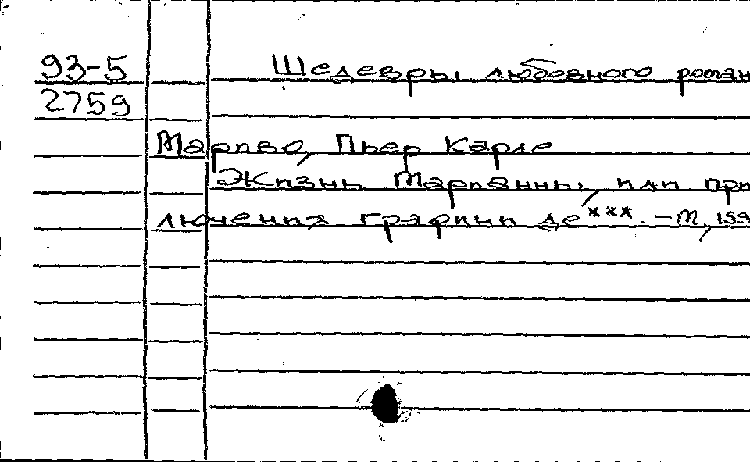 93-5 Шедевры любовного роман
2759
Мариво, Пьер Карле
Жизнь Марианны, или при
ключения графини де ***. - М, 199